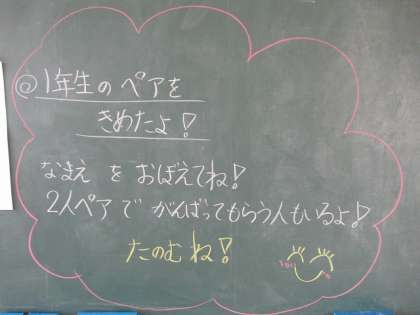 ◎1年生のペアを
きめたよ!
なまえをおぼえてね!
2人ペアでがんばってもらう人もいるよ!
たのむね!